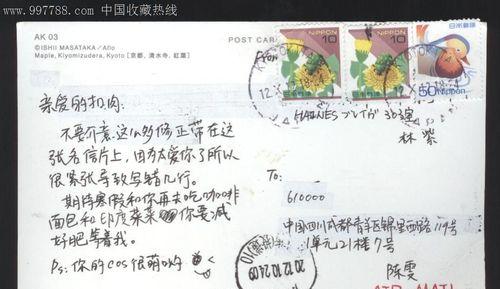 www.997788.com 中国收藏热线
AK 03
©ISHII MASATAKA/Aflo
Maple, Kiyomizudera, Kyoto [京都、清水寺、紅葉]
POST CARD
From
10
NIPPON
10
NIPPON
日本郵便
50 NIPPON
303室
林紫
亲爱的扣肉:
不要介意这么多修正带在这
张名信片上,因为太爱你了所以
很紧张导致写错几行。
期待寒假和你再去吃咖啡
面包和印度菜菜 你要减
好肥等着我。
Ps: 你的cos很萌哟
To:
610000
中国四川成都青羊区锦里西路119号
1单元21楼7号
陈雯
20.12.10 24.09
AIR MAIL